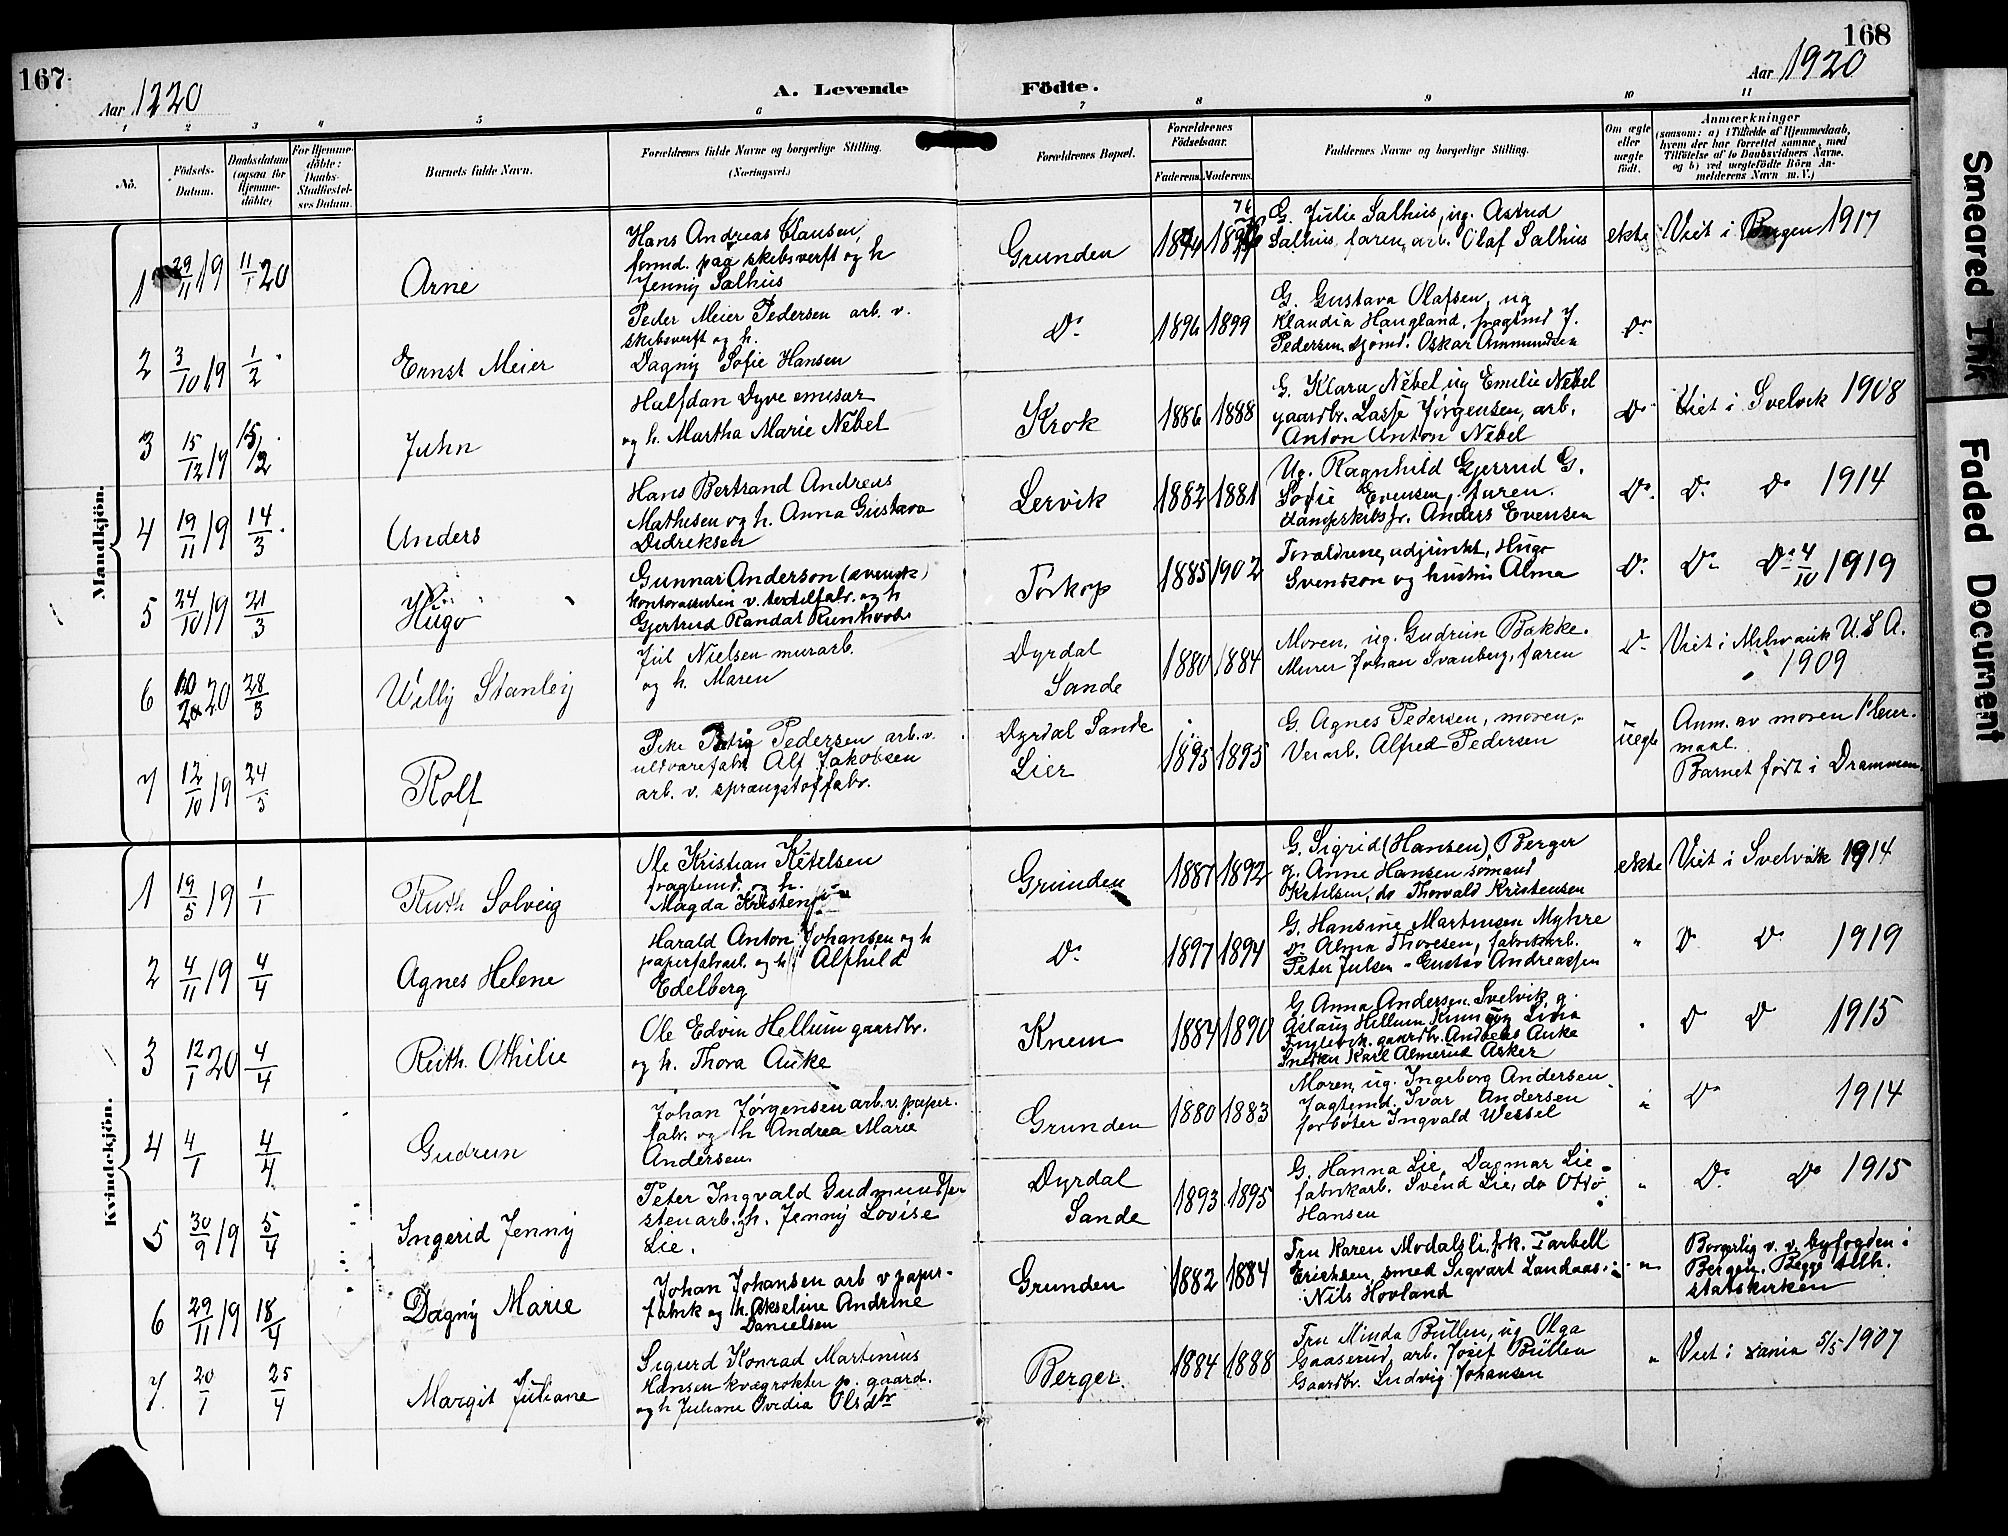 167.
168
Aar 1920
A. Levende
Födte.
Aar 1920
1 2 3 4 5 6 7 8 9 10 11
No.
Födsels-Datum.
Daabsdatum (ogsaa for Hjemme-döbte)
For Hjemme-döbte: Daabs-Stadfæstel-ses Datum.
Barnets fulde Navn.
Forældrenes fulde Navne og borgerlige Stilling.
(Næringsvei.)
Forældrenes Bopæl.
Forældrenes Födselsaar.
Faderens. Moderens.
Faddernes Navne og borgerlige Stilling.
Om ægte eller uægte födt.
Anmærkninger
(saasom: a) i Tilfælde af Hjemmedaab,
hvem der har forrettet samme, med
Tilföielse af to Daabsvidners Navne.
og b) ved uægtefödte Börn An-
melderens Navn m. V.)
Mandkjön.
1 29/11 19 11/1 20 Arne
Hans Andreas Clausen,
formd. paa skibsverft og h
Jenny Salhus
Grunden
G. Julie Salhus, ug. Astrid
Salhus, faren, arb. Olaf Salhus
ekte
Viet i Bergen 1917
2 3/10 19 1/2 Ernst Meier
Peder Meier Pedersen arb. v.
skibsverft og h.
Dagny Sofie Hansen
Do 1896 1899
G. Gustava Olafsen, ug
Klandia Haugland, fragtmd J.
Pedersen, sjömd. Oskar Ammundsen
Do
3 15/12 19 15/2 John
Halfdan Dyve emisær
og h. Martha Marie Nebel
Krok 1886 1888
G. Klara Nebel ug Emilie Nebel
gaardbr. Lasse Jørgensen, arb.
Anton Anton Nebel
Do
Viet i Svelvik 1908
4 19/11 19 14/3 Anders
Hans Bertrand Andreas
Mathisen og h. Anna Gustava
Didreksen
Lervik 1882 1881
Ug. Ragnhild Gjerrud G.
Sofie Evensen, faren.
dampskibsfr. Anders Evensen
Do Do Do 1914
5 24/10 19 21/3 Hugo
Gunnar Anderson (svensk)
v. textilfabr. og h
Gjertrud Randat
Torkop 1885 1902
Foraldrene, adjunkt, Hugo
Svendson og hustru Alma
Do Do Do 4/10 1919
6 20 28/3 Willy Stanley
Jul Nielsen murarb.
og h. Maren
Dyrdal
Sande
1880 1884
Moren, ug. Gudrun Bakke.
Murer Johan Svanberg, faren
Do
Viet i Milwauk U. S. A.
1909
7 12/10 19 24/3 Rolf
Pike Pedersen arb. v.
uldvarefabr Alf Jakobsen
arb. v. sprængstoffabr.
Dyrdal Sande
Lier
1895 1895
G. Agnes Pedersen, moren,
Verarb. Alfred Pedersen
uegte
Anm. av moren 1' leier-
maal.
Barnet født i Drammen.
Kvindekjön.
1 19/5 19 1/1 Ruth Solveig
Ole Kristian Ketelsen
fragtmd. og h.
Magda Kristensen
Grunden 1887 1892
G. Sigrid (Hansen) Berger
g. Anne Hansen sømand
Ketilsen, do Thorvald Kristensen
ekte
Viet i Svelvik 1914
2 4/11 19 4/4 Agnes Helene
Harald Anton Johansen og h
papirfabrarb. og h Alfhild
Edelberg
Do 1897 1894
G. Hansine Martinsen Myhre
Do Alma Thoresen, fabrikarb.
Peter Julsen - Gustav Andreassen
" Do Do 1919
3 12/1 20 4/4 Ruth Othilie
Ole Edvin Hellum gaardbr.
og h. Thora Auke
Knem 1884 1890
G. Anna Andersen Svelvik, g.
Aslaug Hellum Knem
gaardbr. Andreas Auke
Snedker Karl Almerud Asker
" Do Do 1915
4 4/1 4/4 Gudrun
Johan Jørgensen arb. v. papir.
fabr. og h Andrea Marie
Andersen.
Grunden 1880 1883
Moren, ug. Ingeborg Andersen
Fagtemd. Ivar Andersen
forbøter Ingvald Wessel
" Do 1914
5 30/9 19 5/4 Ingerid Jenny
Peter Ingvald Gudmundsen
stenarb. og h. Jenny Lovise
Lie.
Dyrdal
Sande
1893 1895
G. Hanna Lie, Dagmar Lie
fabrikarb. Svend Lie, do Otto
Hansen
" Do Do 1915
6 29/11 19 18/4 Dagny Marie
Johan Johansen arb v papir-
fabrik og h. Akseline Andrine
Danielsen
Grunden 1882 1884
Fru Karen Modalsli, frk. Tarbell
Erichsen, smed Sigvart Landaas
Nils Hovland
"
Borgerlig v. v. byfogden i
Bergen. Begge tilh.
statskirken
7. 20/1 25/4 Margit Juliane
Sigurd Konrad Martinius
Hansen kvægrøkter p. gaard.
og h Juliane Ovedia Olsdtr
Berger. 1884 1888
Fru Minda Büllen, ug Olga
Gaaserud, arb. Josef Büllen
Gaardbr. Ludvig Johansen
" Viet i 5/5 1907
Smeared Ink
Faded Document